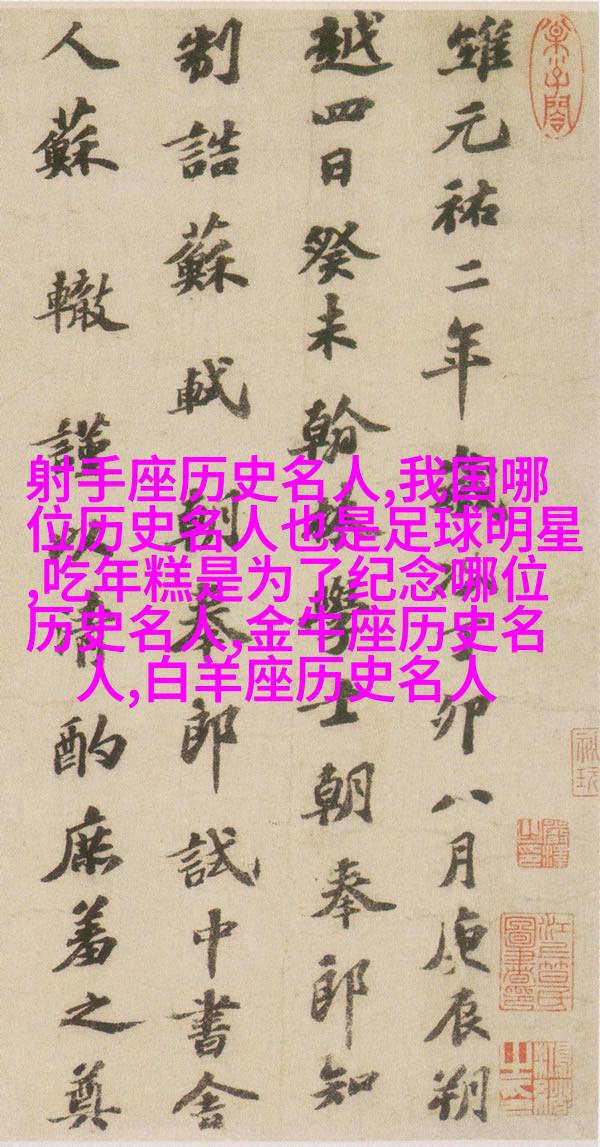 維元祐二年歲次丁卯八月庚辰朔
越四日癸未翰林學士朝奉郎知
制誥蘇軾朝奉郎試中書舍
人蘇轍謹以清酌庶羞之奠
射手座历史名人,我国哪
位历史名人也是足球明星
,吃年糕是为了纪念哪位
历史名人,金牛座历史名
人,白羊座历史名人